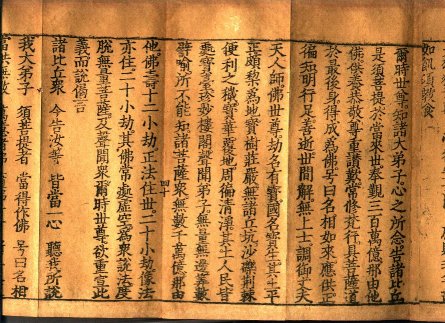 如飢須教食
爾時世尊知諸大弟子心之所念告諸比丘
是須菩提於當來世奉覲三百萬億那由他
佛供養恭敬尊重讚歎常修梵行具菩薩道
於最後身得成為佛號曰名相如來應供正
徧知明行足善逝世間解無上士調御丈夫
天人師佛世尊劫名有寶國名寶生其土平
正頗棃為地寶樹莊嚴無諸丘坑沙礫荊棘
便利之穢寶華覆地周徧清淨其土人民皆
處寶臺珍妙樓閣聲聞弟子無量無邊算數
譬喻所不能知諸菩薩眾無數千萬億那由
他佛壽十二小劫正法住世二十小劫像法
四十
亦住二十小劫其佛常處虛空為眾說法度
脫無量菩薩及聲聞眾爾時世尊欲重宣此
義而說偈言
諸比丘衆 今告汝等 皆當一心 聽我所說
我大弟子 須菩提者 當得作佛 號曰名相
當供無數